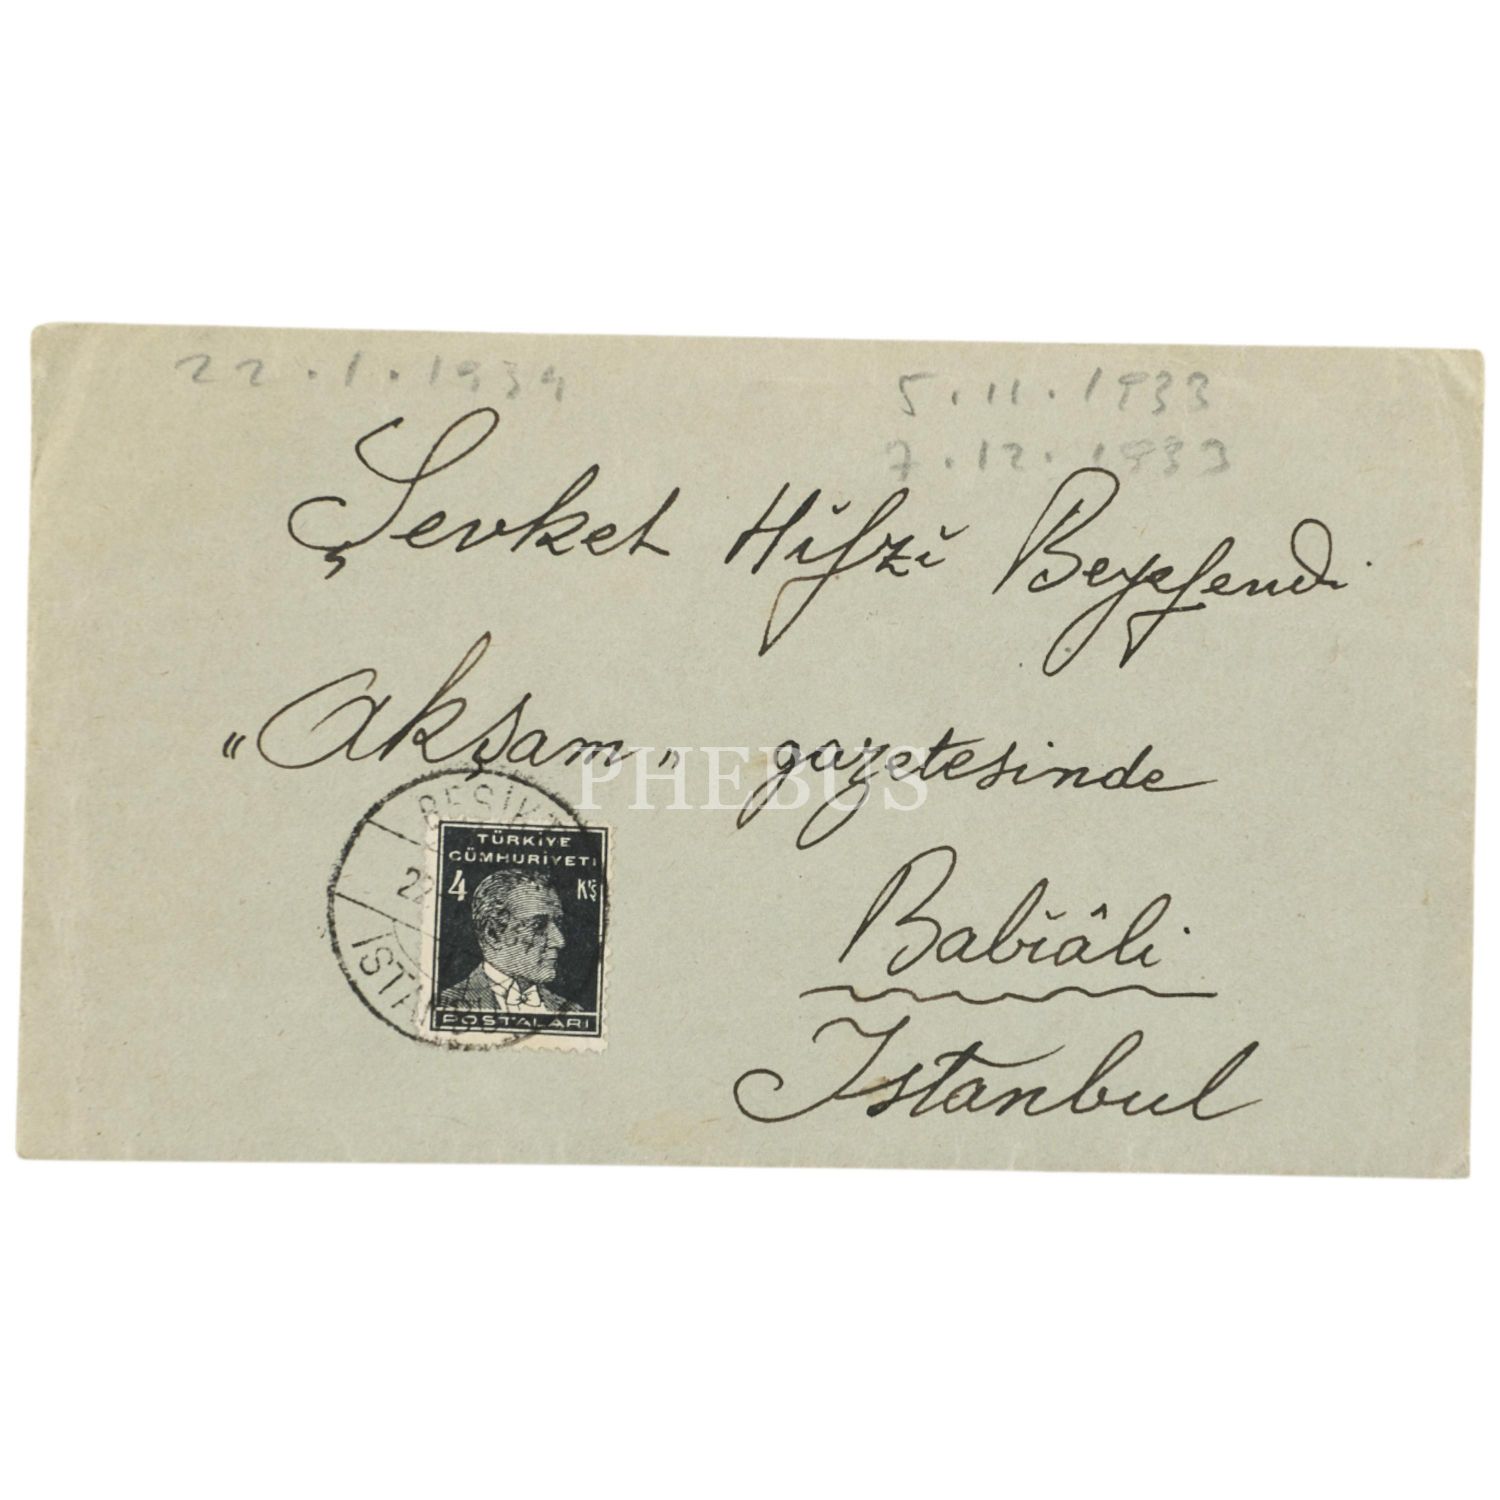 22.1.1934
5.11.1933
7.12.1933
Şevket Hıfzı Beyefendi
„Akşam„ gazetesinde
PHEBUS
Babıâli
Istanbul
TÜRKİYE
CÜMHURİYETİ
4 Kş
POSTALARI